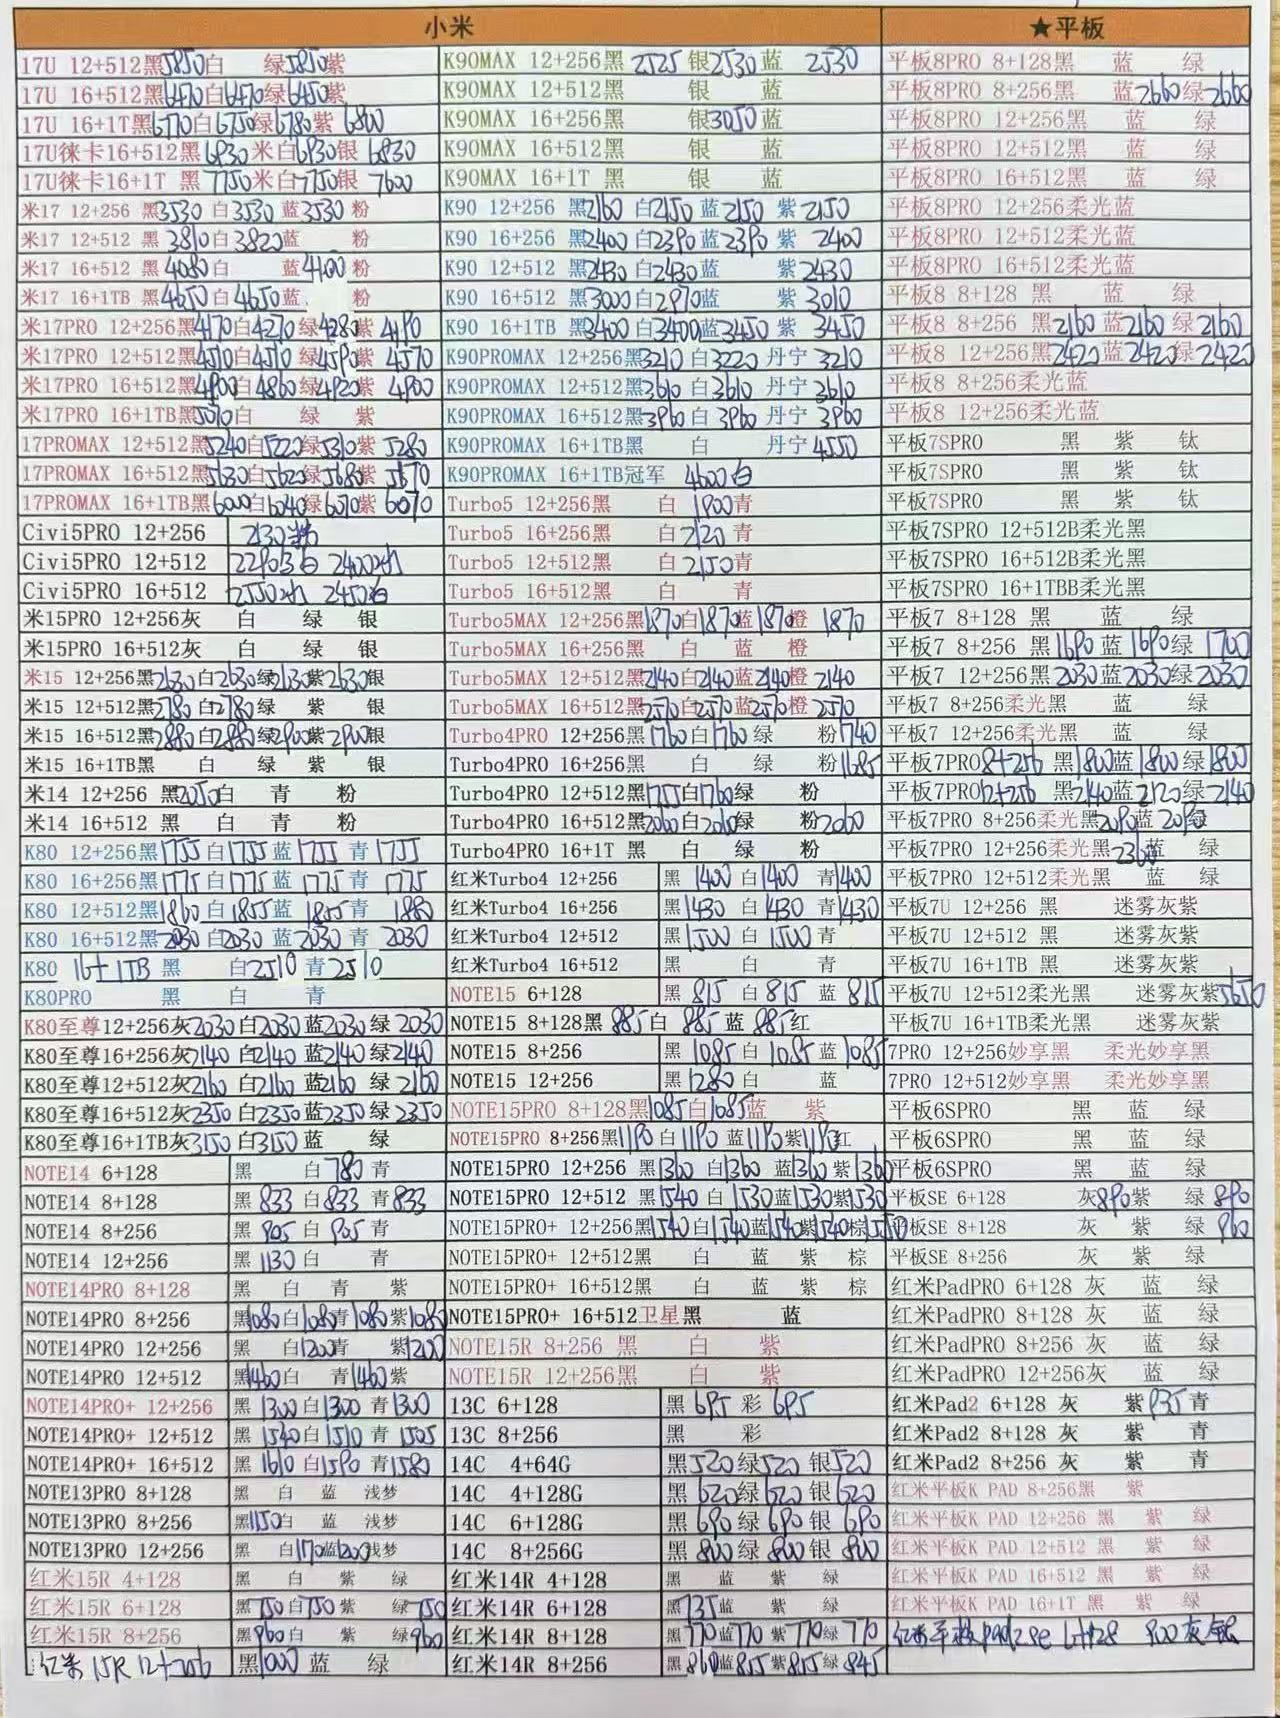 小米
17U 12+512黑5850白 绿5850紫
17U 16+512黑6470白6470绿6450紫
17U 16+1T黑6770白6750绿6780紫 6800
17U徕卡16+512黑6930米白6930银 6830
17U徕卡16+1T 黑 7750米白7750银 7600
米17 12+256 黑3530白3530蓝3530粉
米17 12+512 黑 3810白3820蓝 粉
米17 16+512 黑 4080白 蓝4100粉
米17 16+1TB 黑4650白4650蓝 粉
米17PRO 12+256黑4170白4270绿4280紫 4190
米17PRO 12+512黑4510白4510绿4590紫 4570
米17PRO 16+512黑4900白4860绿4920紫 4900
米17PRO 16+1TB黑5010白 绿 紫
17PROMAX 12+512黑5240白5220绿5310紫 5280
17PROMAX 16+512黑5630白5620绿5680紫 5670
17PROMAX 16+1TB黑6000白6040绿6070紫 6070
Civi5PRO 12+256 2130
Civi5PRO 12+512 2290 白 2400
Civi5PRO 16+512 2550 2450白
米15PRO 12+256灰 白 绿 银
米15PRO 16+512灰 白 绿 银
米15 12+256黑2630白2630绿2630紫2630银
米15 12+512黑2780白2780绿 紫 银
米15 16+512黑2880白2880绿2900紫2900银
米15 16+1TB黑 白 绿 紫 银
米14 12+256 黑2050白 青 粉
米14 16+512 黑 白 青 粉
K80 12+256黑1755白1755蓝1755青1755
K80 16+256黑1775白1775蓝1775青1775
K80 12+512黑1860白1855蓝1855青1880
K80 16+512黑2030白2030蓝2030青2030
K80 16+1TB 黑 白2510青2510
K80PRO 黑 白 青
K80至尊12+256灰2030白2030蓝2030绿2030
K80至尊16+256灰2140白2140蓝2140绿2140
K80至尊12+512灰2160白2160蓝2160绿2160
K80至尊16+512灰2350白2350蓝2350绿2350
K80至尊16+1TB灰3150白3150蓝 绿
NOTE14 6+128 黑 白780青
NOTE14 8+128 黑833白833青833
NOTE14 8+256 黑905白905青
NOTE14 12+256 黑1130白 青
NOTE14PRO 8+128 黑 白 青 紫
NOTE14PRO 8+256 黑1080白1080青1080紫1080
NOTE14PRO 12+256 黑 白1200青 紫1200
NOTE14PRO 12+512 黑1460白 青1460紫
NOTE14PRO+ 12+256 黑1300白1300青1300
NOTE14PRO+ 12+512 黑1540白1510青1505
NOTE14PRO+ 16+512 黑1610白1590青1580
NOTE13PRO 8+128 黑 白 蓝 浅梦
NOTE13PRO 8+256 黑1150白 蓝 浅梦
NOTE13PRO 12+256 黑 白 蓝1200浅梦
红米15R 4+128 黑 白 紫 绿
红米15R 6+128 黑750白750紫 绿750
红米15R 8+256 黑960白 紫 绿960
红米15R 12+256 黑1000蓝 绿
K90MAX 12+256黑2525银2530蓝 2530
K90MAX 12+512黑 银 蓝
K90MAX 16+256黑 银3050蓝
K90MAX 16+512黑 银 蓝
K90MAX 16+1T 黑 银 蓝
K90 12+256 黑2160白2150蓝2150紫2150
K90 16+256 黑2400白2390蓝2390紫 2400
K90 12+512 黑2430白2430蓝 紫2430
K90 16+512 黑3000白2970蓝 紫3010
K90 16+1TB 黑3400白3400蓝3450紫 3450
K90PROMAX 12+256黑3210白3220丹宁3210
K90PROMAX 12+512黑3610白3610丹宁3610
K90PROMAX 16+512黑3960白3960丹宁3960
K90PROMAX 16+1TB黑 白 丹宁4550
K90PROMAX 16+1TB冠军 4600白
Turbo5 12+256黑 白1900青
Turbo5 16+256黑 白2120青
Turbo5 12+512黑 白2150青
Turbo5 16+512黑 白 青
Turbo5MAX 12+256黑1870白1870蓝1870橙1870
Turbo5MAX 16+256黑 白 蓝 橙
Turbo5MAX 12+512黑2140白2140蓝2140橙2140
Turbo5MAX 16+512黑2570白2570蓝2570橙2570
Turbo4PRO 12+256黑1760白1760绿 粉1740
Turbo4PRO 16+256黑 白 绿 粉1685
Turbo4PRO 12+512黑1755白1760绿 粉
Turbo4PRO 16+512黑2060白2060绿 粉2060
Turbo4PRO 16+1T 黑 白 绿 粉
红米Turbo4 12+256 黑1400白1400青1400
红米Turbo4 16+256 黑1430白1430青1430
红米Turbo4 12+512 黑1500白1500青
红米Turbo4 16+512 黑 白 青
NOTE15 6+128 黑815白815蓝815
NOTE15 8+128黑885白885蓝885红
NOTE15 8+256 黑1085白1085蓝1085
NOTE15 12+256 黑1280白 蓝
NOTE15PRO 8+128黑1085白1085蓝 紫
NOTE15PRO 8+256黑1190白1190蓝1190紫1190红
NOTE15PRO 12+256 黑1360白1360蓝1360紫1360
NOTE15PRO 12+512 黑1540白1530蓝1530紫1530
NOTE15PRO+ 12+256黑1540白1540蓝1540紫1540棕1550
NOTE15PRO+ 12+512黑 白 蓝 紫 棕
NOTE15PRO+ 16+512黑 白 蓝 紫 棕
NOTE15PRO+ 16+512卫星黑 蓝
NOTE15R 8+256 黑 白 紫
NOTE15R 12+256黑 白 紫
13C 6+128 黑695彩695
13C 8+256 黑 彩
14C 4+64G 黑520绿520银520
14C 4+128G 黑620绿620银620
14C 6+128G 黑690绿690银690
14C 8+256G 黑800绿800银800
红米14R 4+128 黑 蓝 紫 绿
红米14R 6+128 黑735蓝 紫 绿
红米14R 8+128 黑770蓝770紫770绿770
红米14R 8+256 黑860蓝855紫855绿845
★平板
平板8PRO 8+128黑 蓝 绿
平板8PRO 8+256黑 蓝2660绿2660
平板8PRO 12+256黑 蓝 绿
平板8PRO 12+512黑 蓝 绿
平板8PRO 16+512黑 蓝 绿
平板8PRO 12+256柔光蓝
平板8PRO 12+512柔光蓝
平板8PRO 16+512柔光蓝
平板8 8+128 黑 蓝 绿
平板8 8+256 黑2160蓝2160绿2160
平板8 12+256黑2420蓝2420绿2420
平板8 8+256柔光蓝
平板8 12+256柔光蓝
平板7SPRO 黑 紫 钛
平板7SPRO 黑 紫 钛
平板7SPRO 黑 紫 钛
平板7SPRO 12+512B柔光黑
平板7SPRO 16+512B柔光黑
平板7SPRO 16+1TBB柔光黑
平板7 8+128 黑 蓝 绿
平板7 8+256 黑1690蓝1690绿1700
平板7 12+256黑2030蓝2030绿2030
平板7 8+256柔光黑 蓝 绿
平板7 12+256柔光黑 蓝 绿
平板7PRO8+256 黑1800蓝1800绿1800
平板7PRO12+256 黑2140蓝2120绿2140
平板7PRO 8+256柔光黑2090蓝2090绿
平板7PRO 12+256柔光黑2360蓝 绿
平板7PRO 12+512柔光黑 蓝 绿
平板7U 12+256 黑 迷雾灰紫
平板7U 12+512 黑 迷雾灰紫
平板7U 16+1TB 黑 迷雾灰紫
平板7U 12+512柔光黑 迷雾灰紫5650
平板7U 16+1TB柔光黑 迷雾灰紫
7PRO 12+256妙享黑 柔光妙享黑
7PRO 12+512妙享黑 柔光妙享黑
平板6SPRO 黑 蓝 绿
平板6SPRO 黑 蓝 绿
平板6SPRO 黑 蓝 绿
平板SE 6+128 灰890紫 绿890
平板SE 8+128 灰 紫 绿960
平板SE 8+256 灰 紫 绿
红米PadPRO 6+128 灰 蓝 绿
红米PadPRO 8+128灰 蓝 绿
红米PadPRO 8+256灰 蓝 绿
红米PadPRO 12+256灰 蓝 绿
红米Pad2 6+128 灰 紫935青
红米Pad2 8+128 灰 紫 青
红米Pad2 8+256 灰 紫 青
红米平板K PAD 8+256黑 紫
红米平板K PAD 12+256 黑 紫 绿
红米平板K PAD 12+512 黑 紫 绿
红米平板K PAD 16+512 黑 紫 绿
红米平板K PAD 16+1T 黑 紫 绿
红米平板pad2se 6+128 900灰银